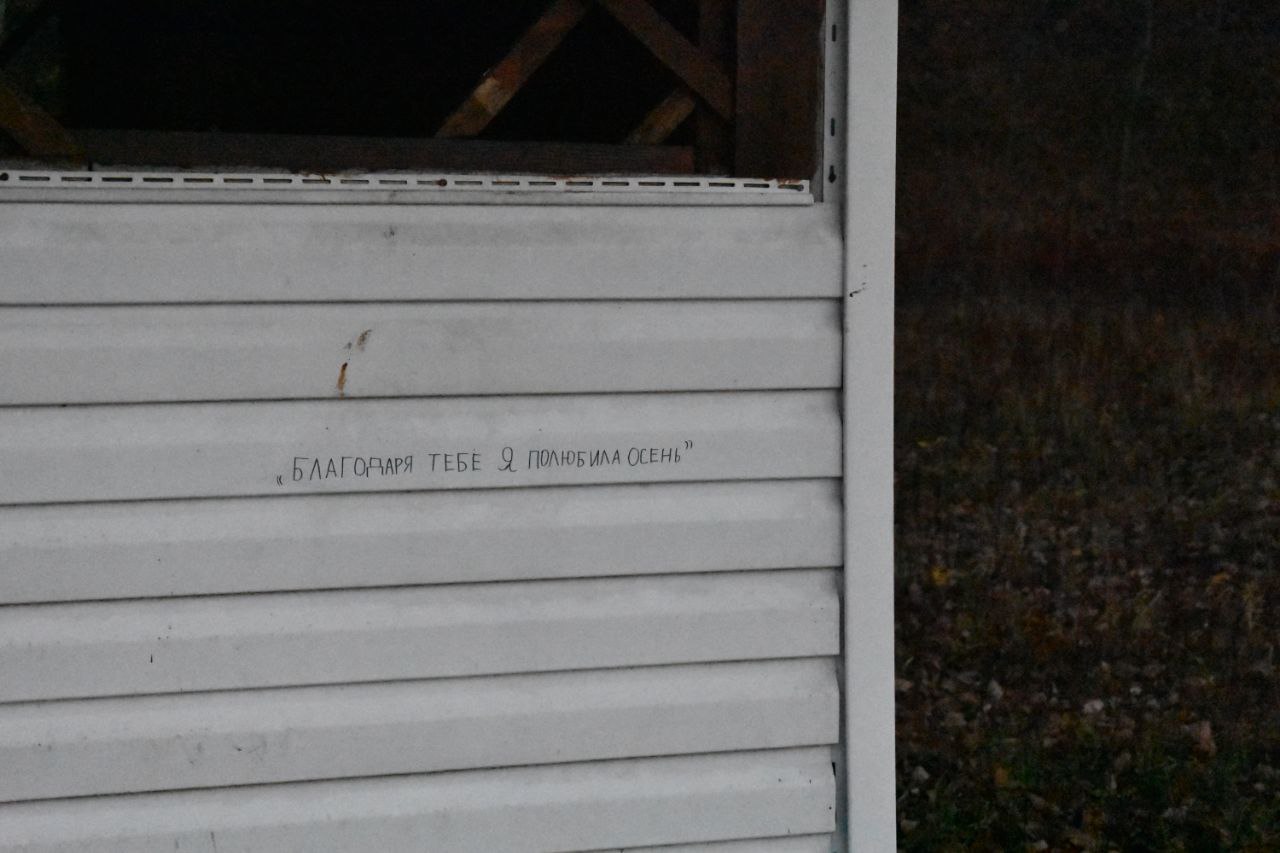 „БЛАГОДАРЯ ТЕБЕ Я ПОЛЮБИЛА ОСЕНЬ”